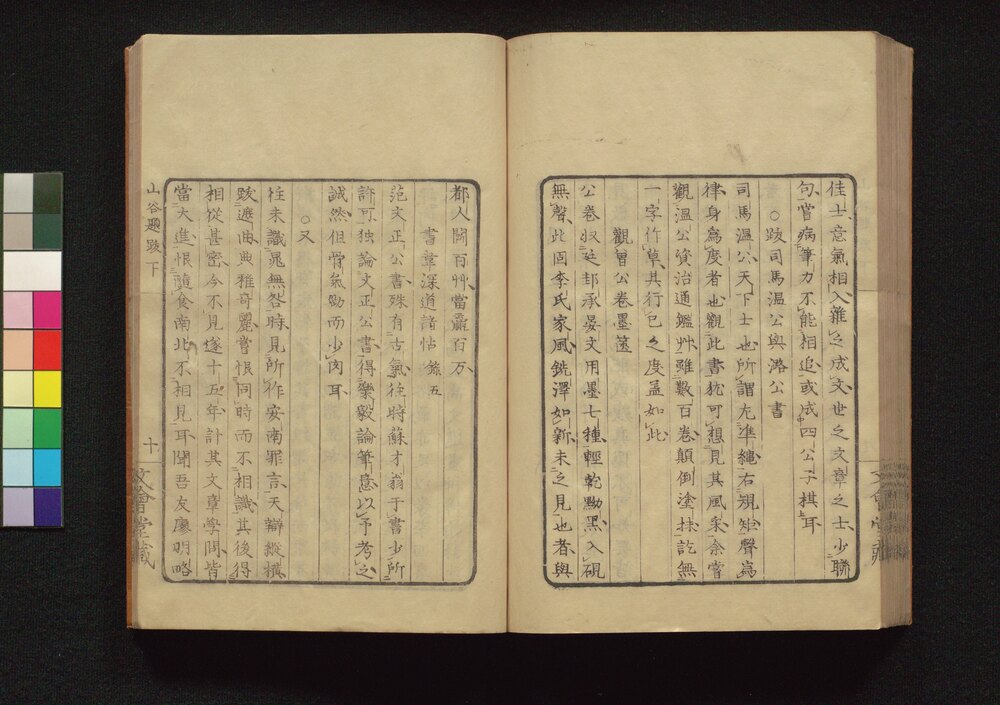 佳士意氣相入雜之成文世之文章之士少聯
句嘗病筆力不能相追或成四公子棋耳
○跋司馬温公與潞公書
司馬温公天下士也所謂左準繩右規矩聲為
律身為度者也觀此書猶可想見其風采余嘗
觀溫公資治通鑑艸雖數百卷顛倒塗抹訖無
一字作草其行己之度蓋如此
觀曾公卷墨篋
公卷收廷邽承晏文用墨七種輕乾黝黑入硯
無聲此固李氏家風銑澤如新未之見也者與
都人鬪百艸當贏百万
書韋深道諸帖 錄五
范文正公書殊有古氣徃時蘇才翁于書少所
許可独論文正公書得樂毅論筆意以予考之
誠然但骨氣勁而少肉耳
○又
徃未識晁無咎時見所作安南罪言天辯縱橫
跋遮曲典雅奇麗嘗恨同時而不相識其後得
相從甚密今不見遂十五年計其文章學問皆
當大進恨隨食南北不相見耳聞吾友廉明略
山谷題跋下
十
文會堂藏
文會堂藏